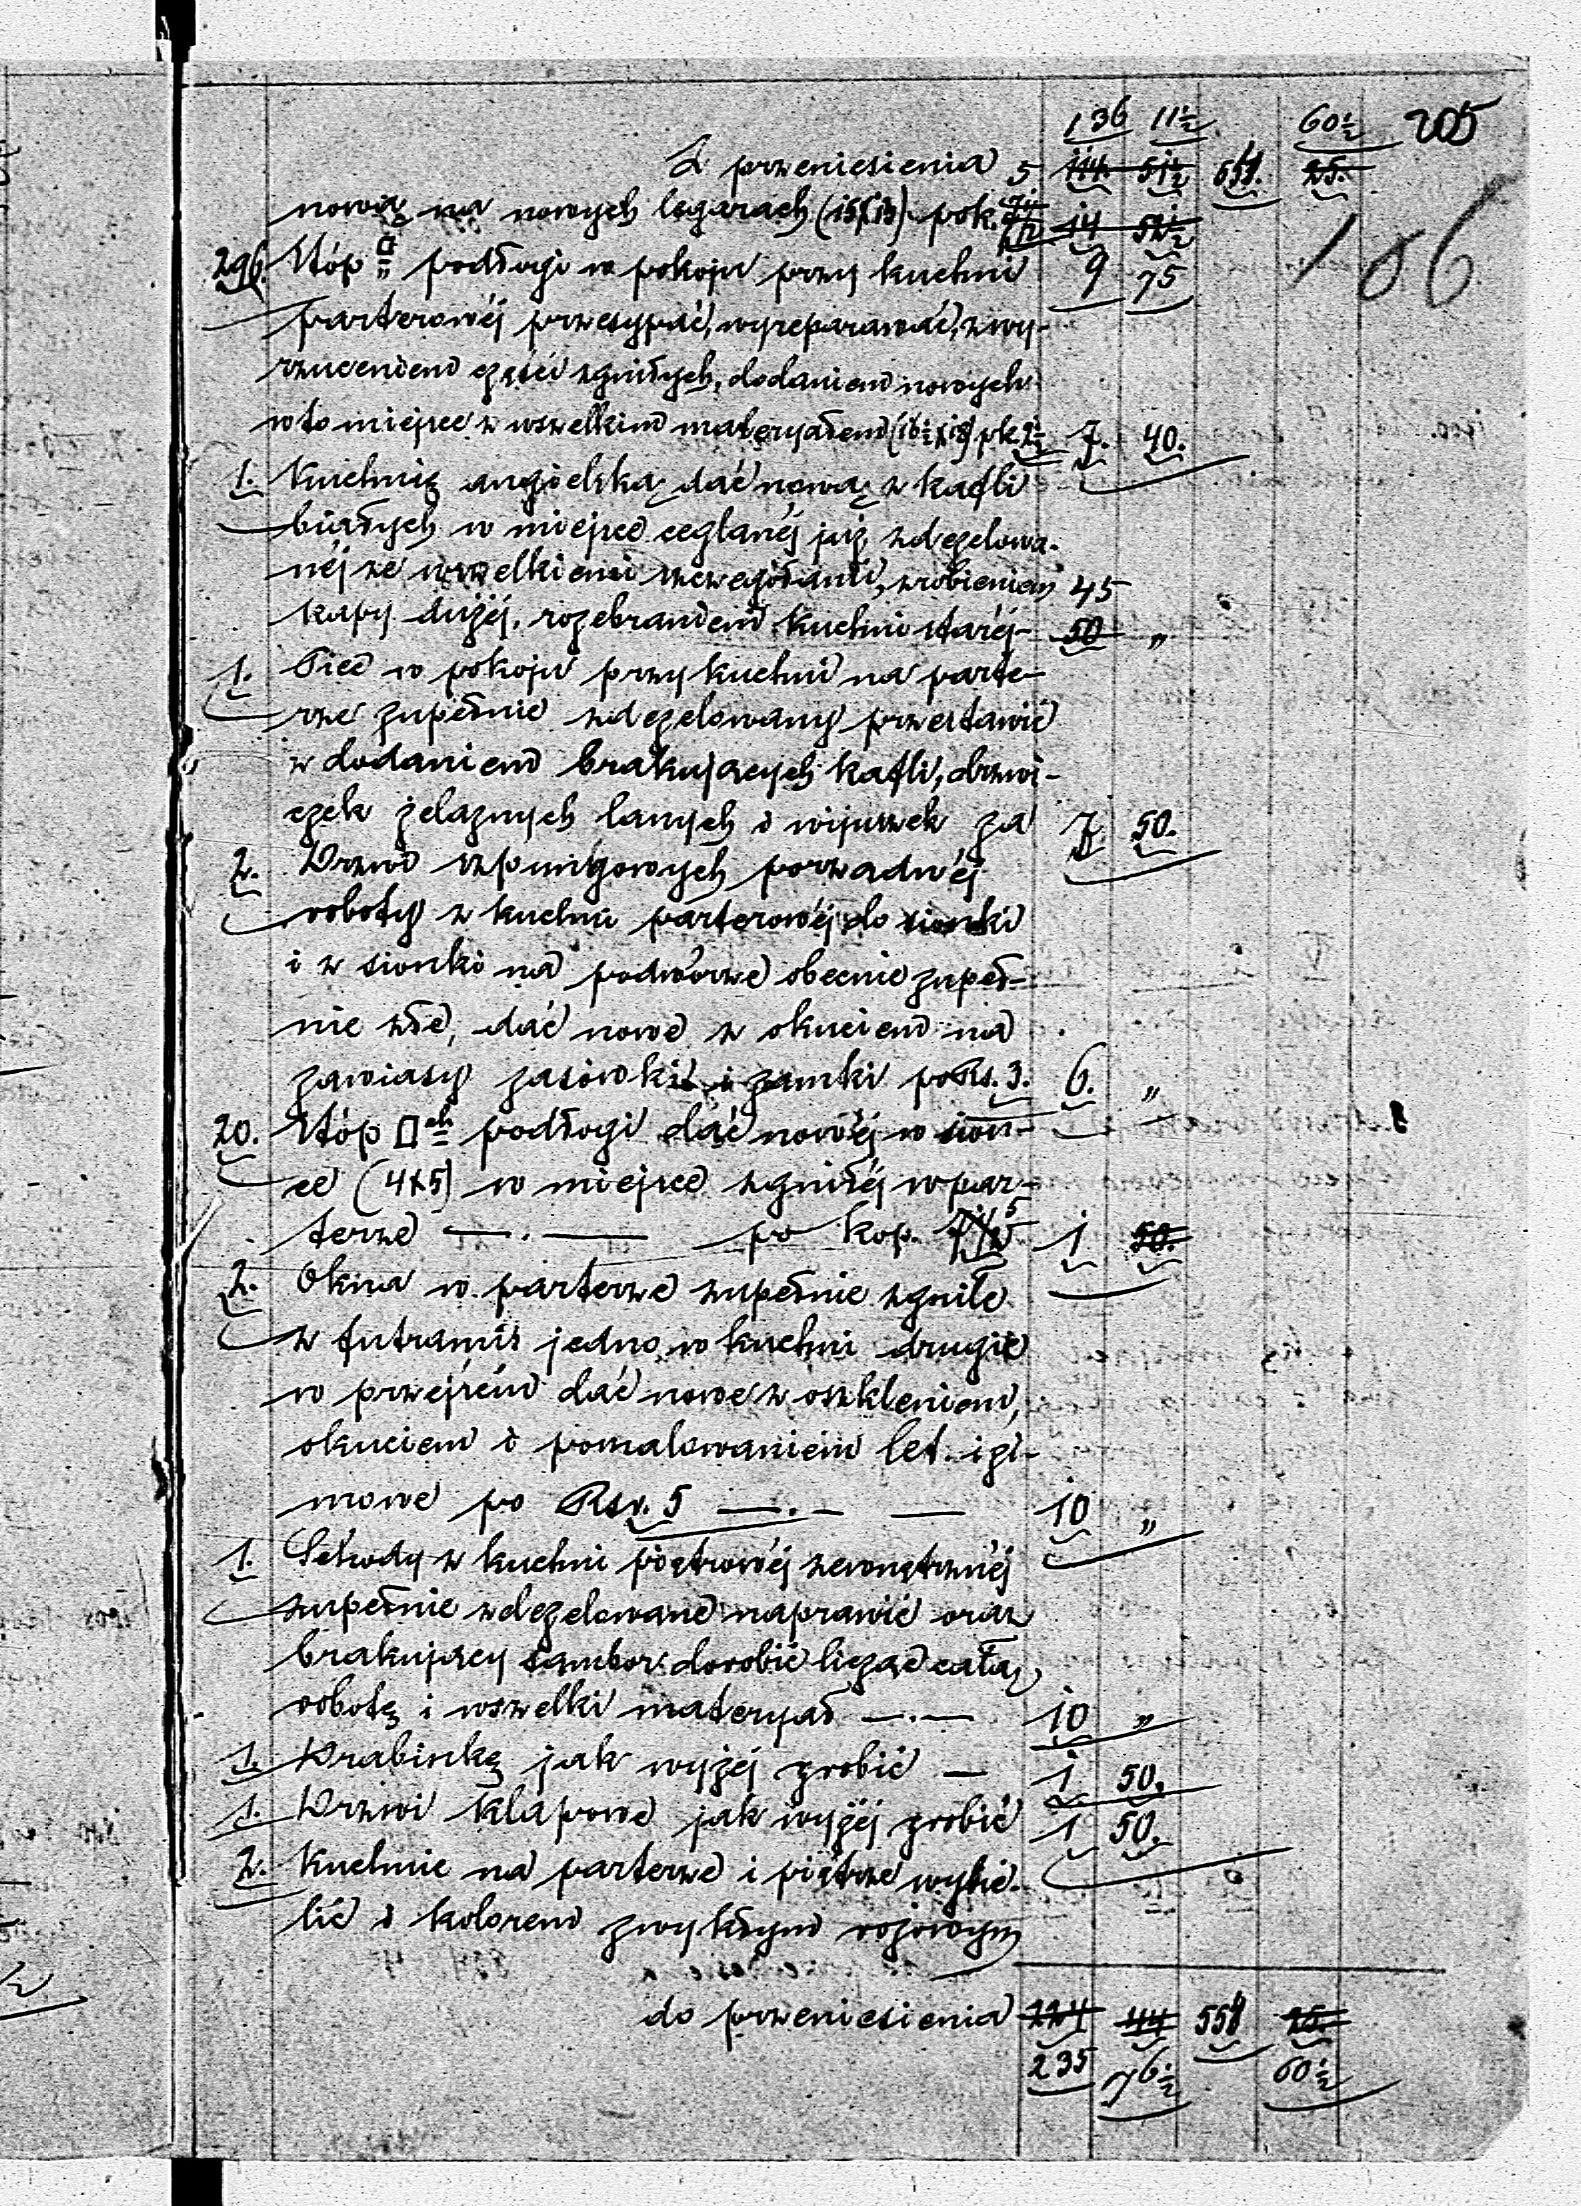 136 11½ 60½ 205
Z przeniesienia 5 114 51½ 558. 25.
nową na nowych legarach (15x13) pok. 7½ 14 52½
106
296. Stóp □ podłogi w pokoju przy kuchni 9 75
parterowéj przesypać, wyreparować, z wy-
rzuceniem części zgniłych, dodaniem nowych
w to miejsce z wszelkim materyałem (16½x18) pk 2½ 7. 40.
1. Kuchnię angielską dać nową z kafli
białych w miejsce ceglanéj już zdezelowa-
néj ze wszelkiemi szczegółami, zrobieniem 45
kapy dużéj, rozebraniem kuchni staréj- 50 "
1. Piec w pokoju przy kuchni na parte-
rze zupełnie zdezelowany przestawić
z dodaniem brakujących kafli, drzwi-
czek żelaznych lanych i wijuszek za 7 50.
2. Drzwi szpungowych porządnéj
roboty z kuchni parterowéj do sionki
i z sionki na podwórze obecnie zupeł-
nie złe, dać nowe z okuciem na
zawiasy zasówki i zamki po Rs. 3. 6. "
20. Stóp □ch podłogi dać nowéj w sion-
ce (4x5) w miejsce zgniłéj w par-
terze —.— po kop. 7½ 5 1 50.
2. Okna w parterze zupełnie zgniłe
z futrami jedno w kuchni drugie
w przejściu dać nowe z oszkleniem,
okuciem i pomalowaniem let. i zi-
mowe po Rsr. 5 —.— — 10 "
1. Schody z kuchni piętrowéj zewnętrznéj
zupełnie zdezelowane naprawić oraz
brakujący tambor dorobić licząc całą
robotę i wszelki materyał —.— 10 "
1. Drabinkę jak wyżéj zrobić — 1 50.
1. Drzwi klapowe jak wyżéj zrobić 1 50.
2. Kuchnie na parterze i piętrze wybie-
lić i kolorem zwykłym różowym
do przeniesienia 224 44 558 25.
235 76½ 60½